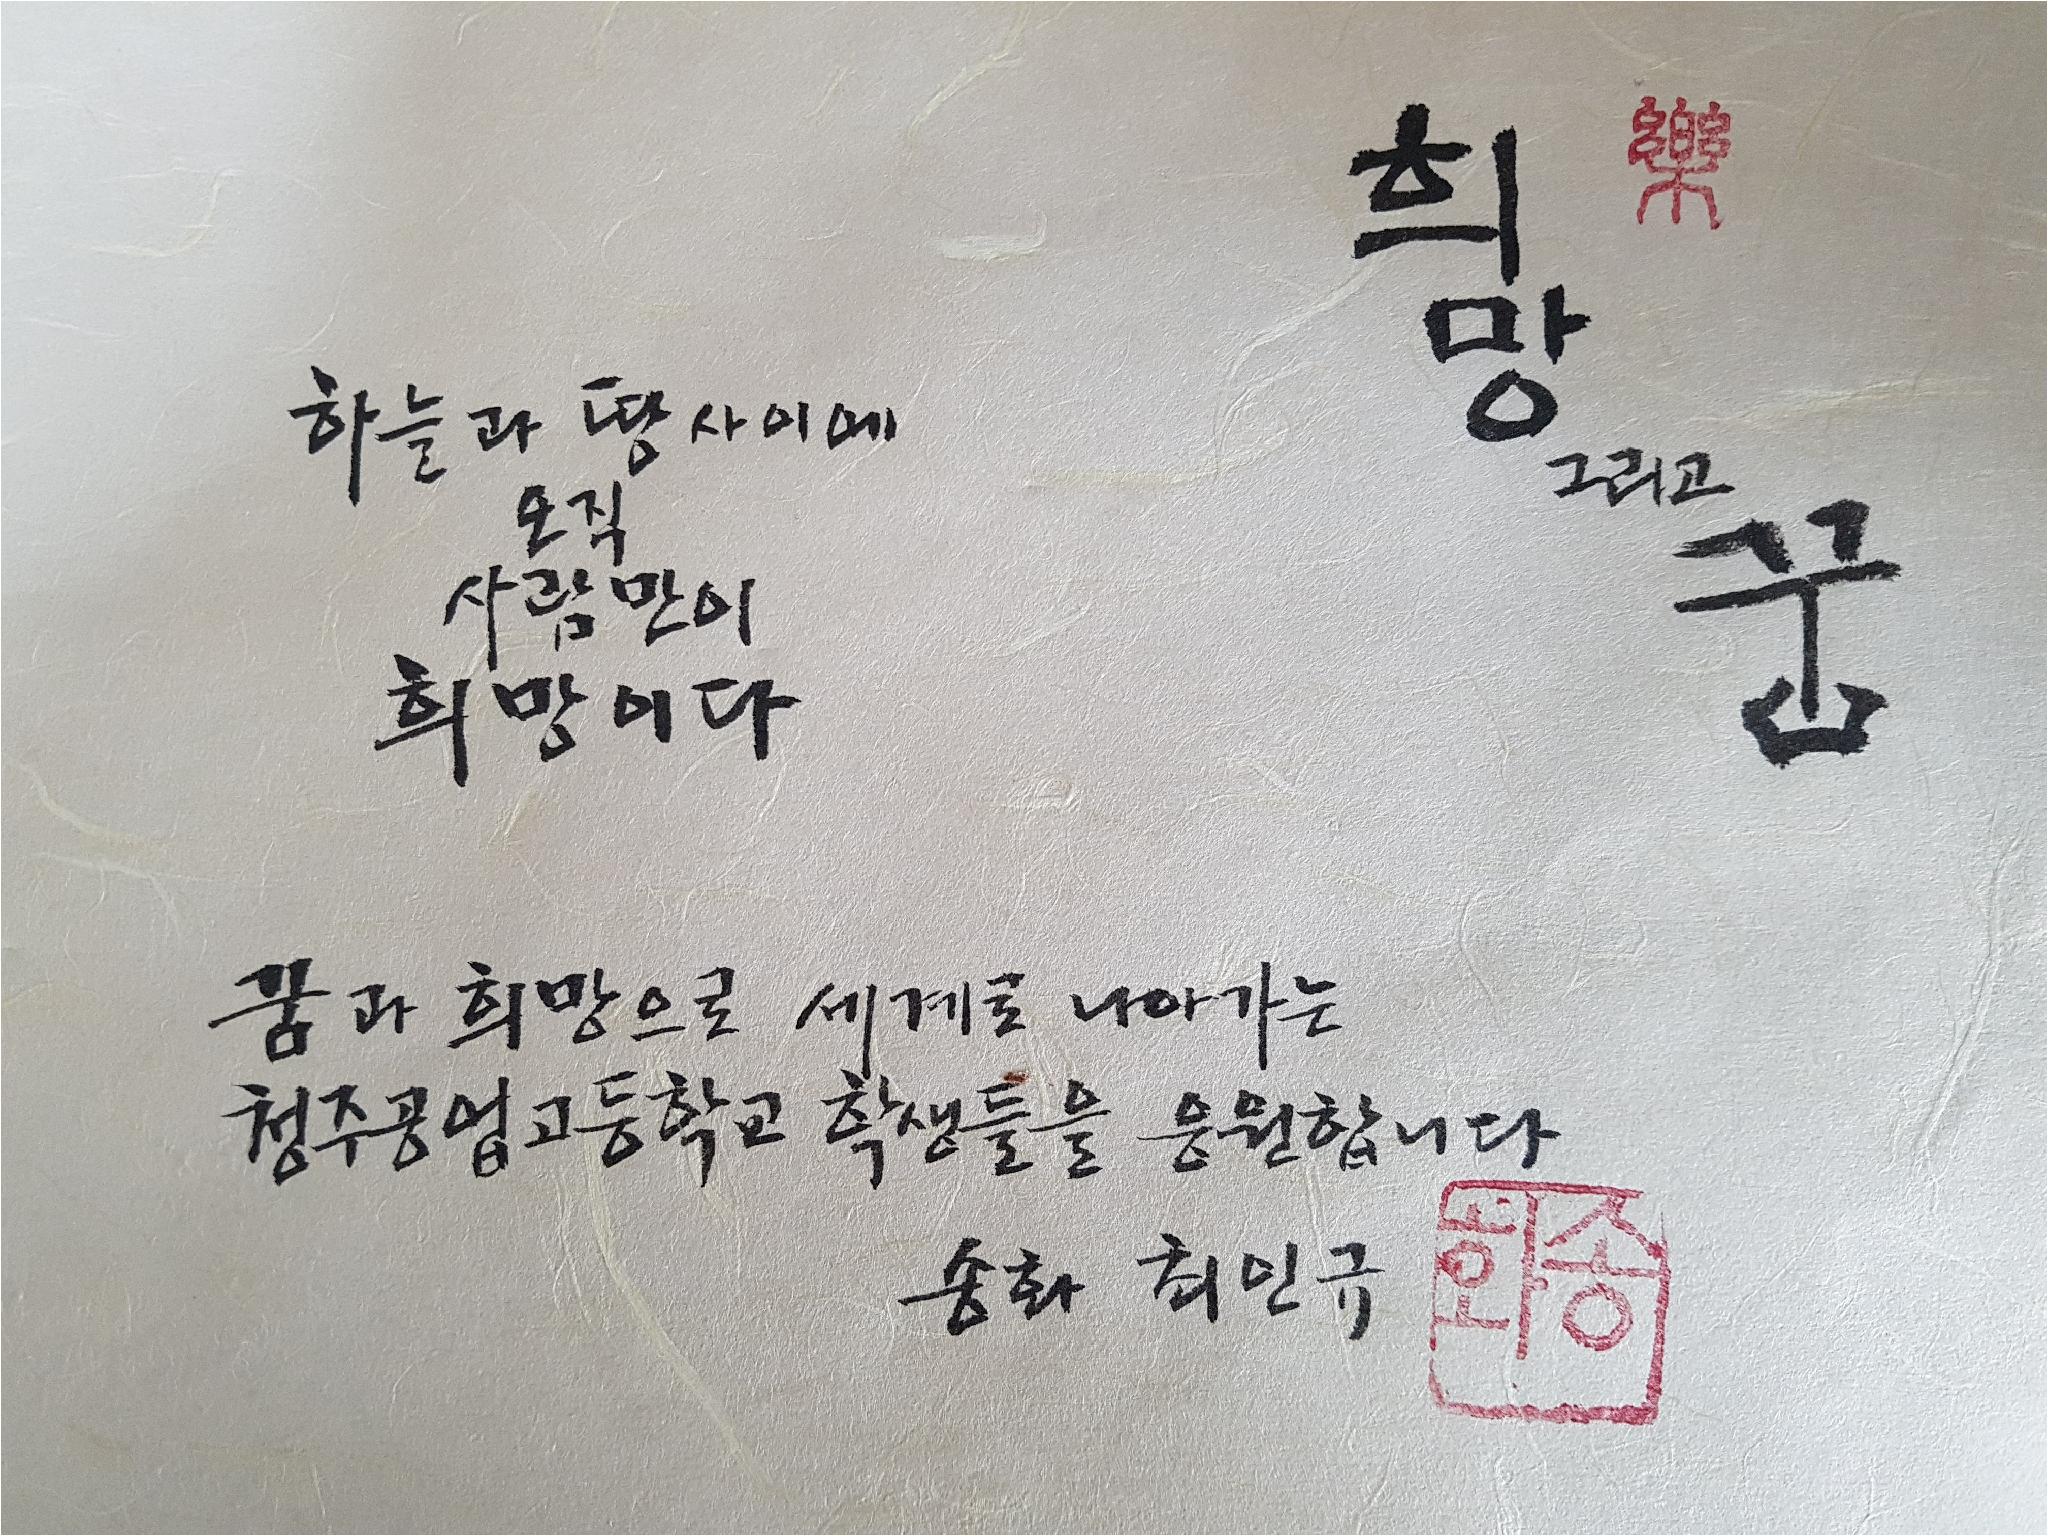 樂
희망
그리고
꿈
하늘과 땅 사이에
오직
사람만이
희망이다
꿈과 희망으로 세계로 나아가는
청주공업고등학교 학생들을 응원합니다
송화 최인규
송화